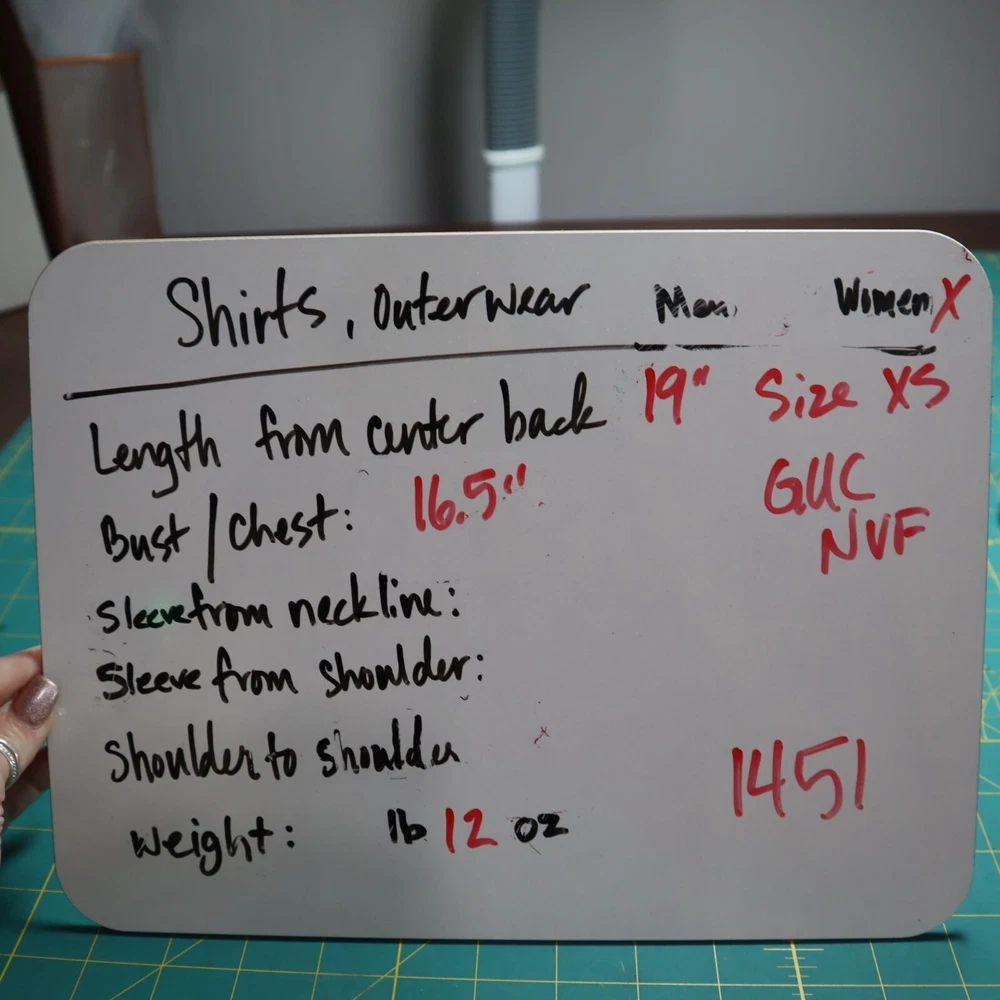 Shirts, outerwear Men Women X
Length from center back 19" Size XS
Bust / Chest: 16.5" GUC
NVF
Sleeve from neckline:
Sleeve from shoulder:
Shoulder to shoulder
Weight: lb 12 oz
1451